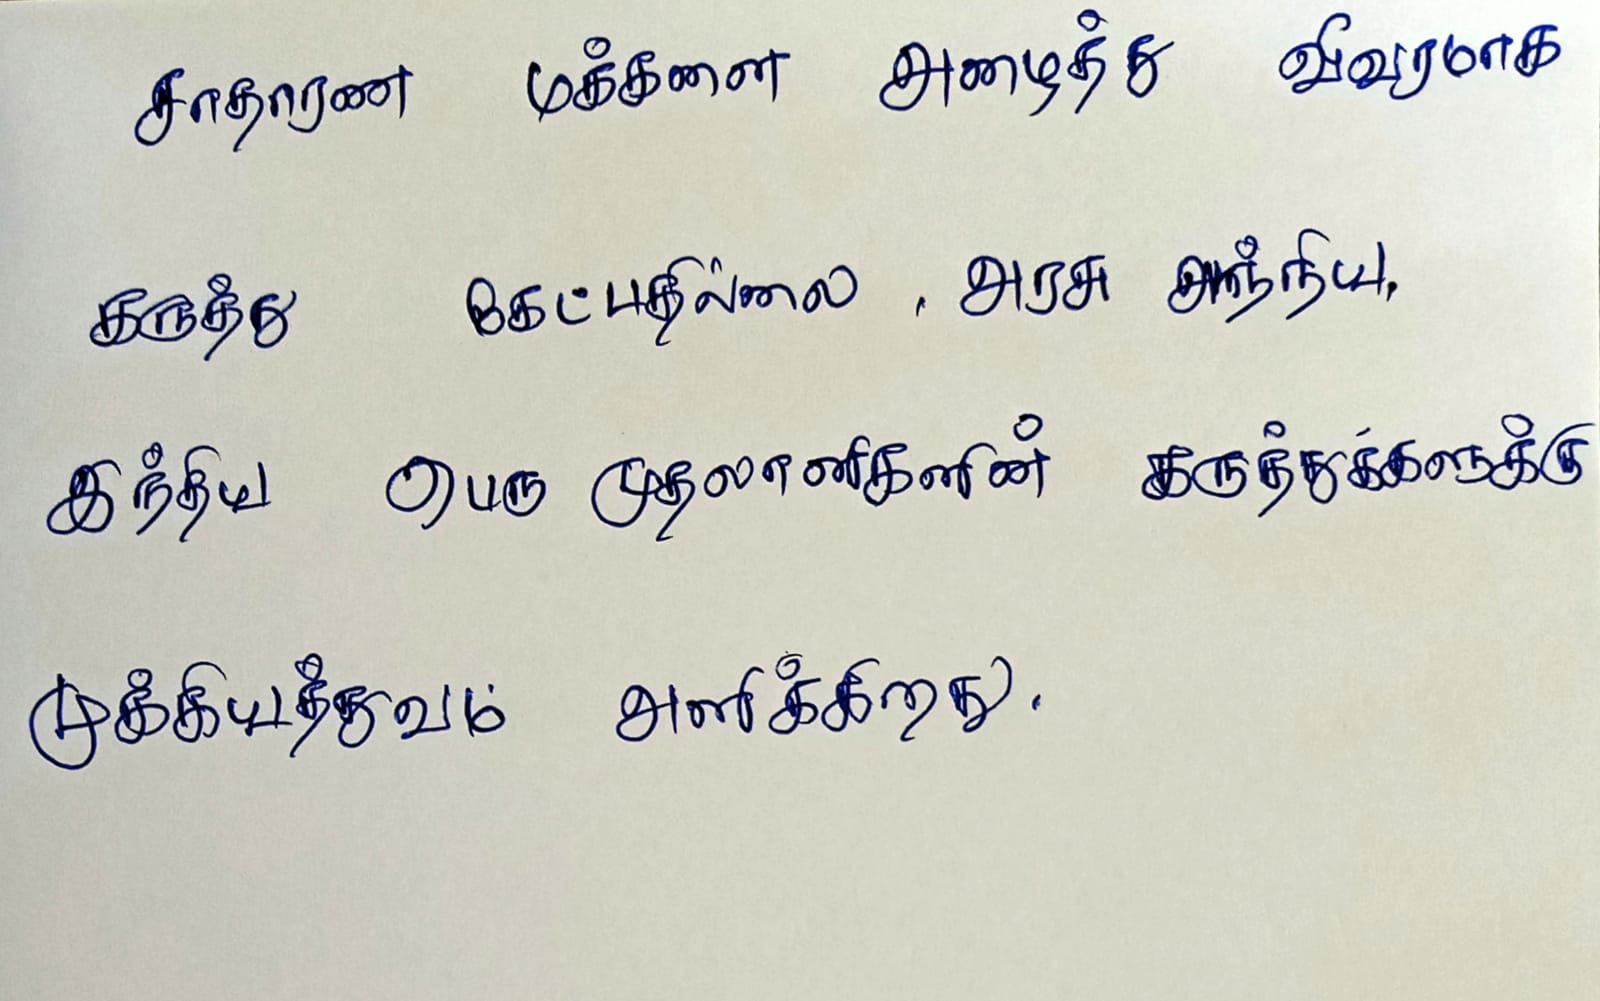 சாதாரண மக்களை அழைத்து விவரமாக
கருத்து கேட்பதில்லை. அரசு அந்நிய,
இந்திய பெரு முதலாளிகளின் கருத்துக்களுக்கு
முக்கியத்துவம் அளிக்கிறது.